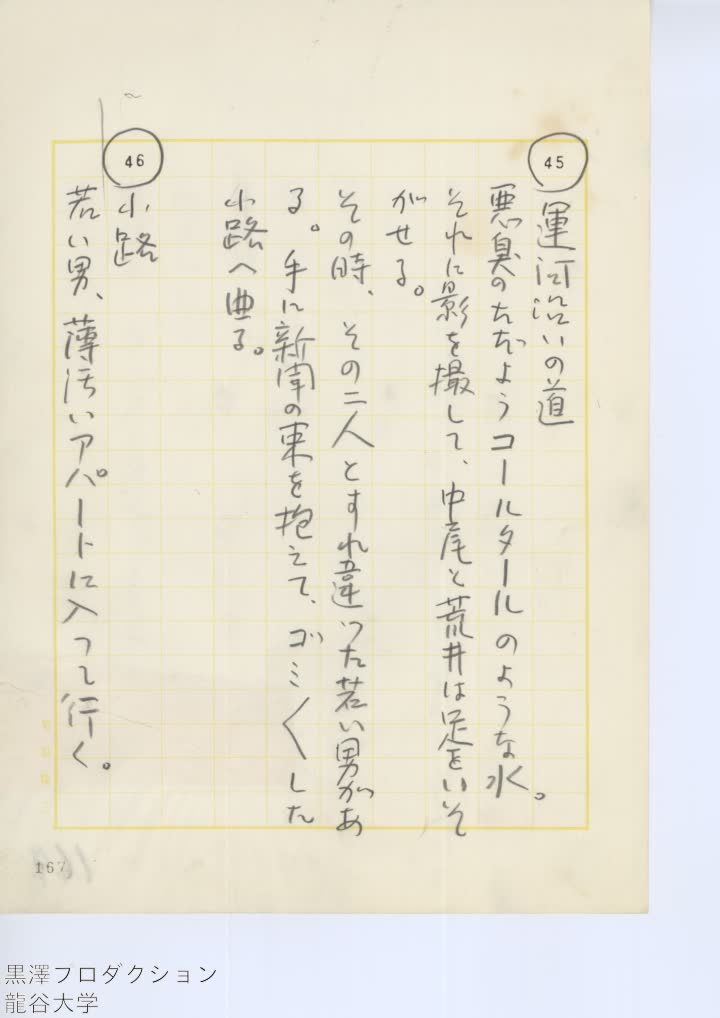 45
運河沿いの道
悪臭のただようコールタールのような水。
それに影を撮して、中尾と荒井は足をいそ
がせる。
その時、その二人とすれ違った若い男があ
る。手に新聞の束を抱えて、ゴミ〱した
小路へ曲る。
46
小路
若い男、薄汚いアパートに入って行く。
167
黒澤プロダクション
龍谷大学